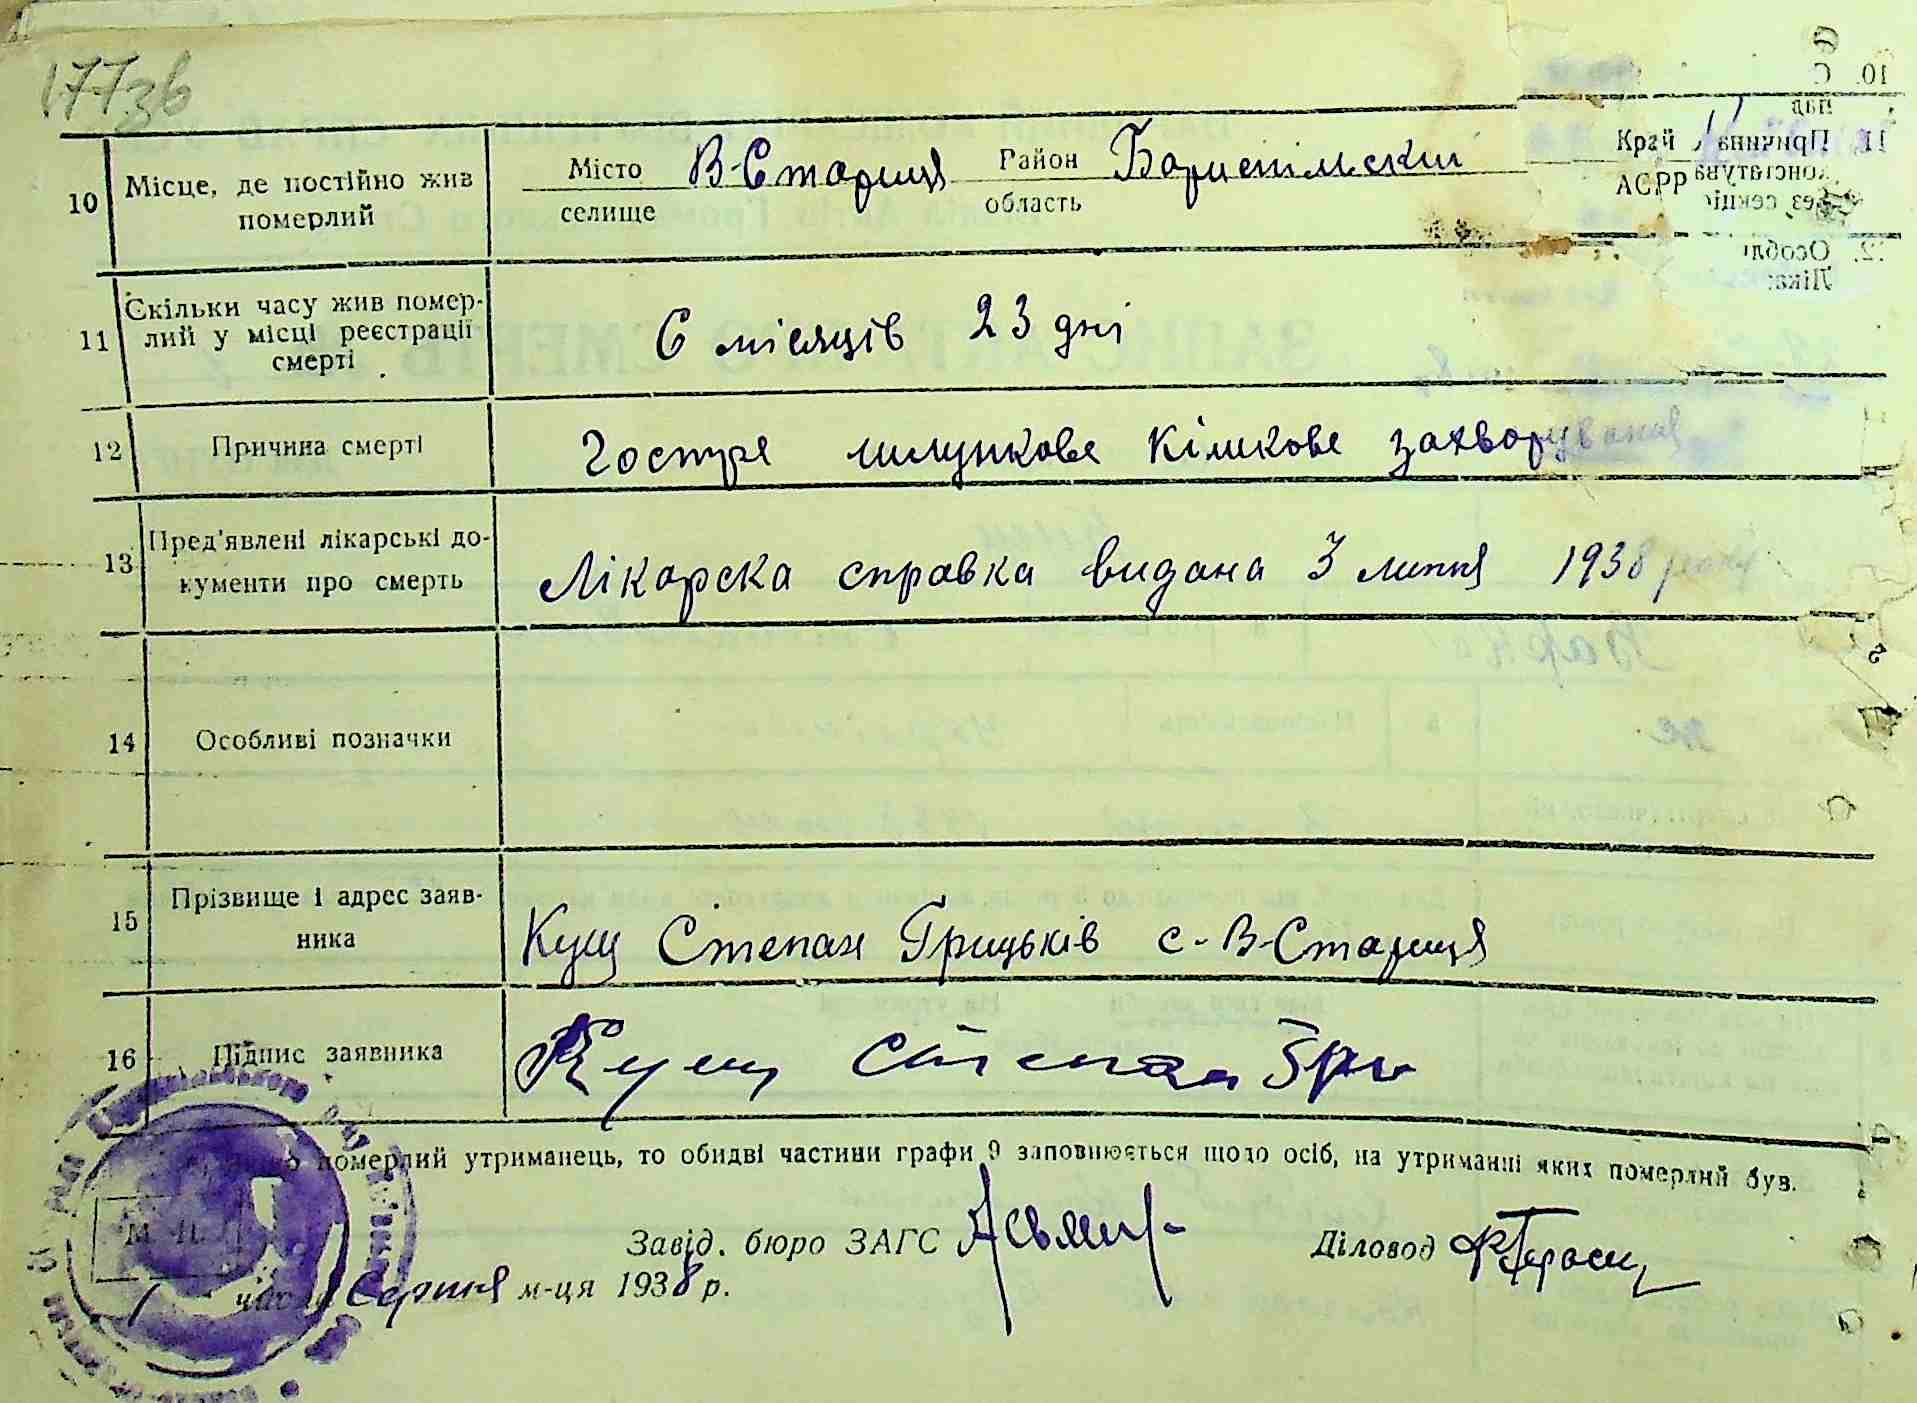 177зв
10 Місце, де постійно жив померлий Місто селище В-Стариця Район область Бориспільский Край АСРР
11 Скільки часу жив помер-
лий у місці реєстрації
смерті 6 місяців 23 дні
12 Причина смерті Гостре шлункове кішкове захворування
13 Пред'явлені лікарські до-
кументи про смерть Лікарска справка видана 3 липня 1938 року
14 Особливі позначки
15 Прізвище і адрес заяв-
ника Кущ Степан Грицьків с-В-Стариця
16 Підпис заявника Кущ Степан Гри
померлий утриманець, то обидві частини графи 9 заповнюється щодо осіб, на утриманні яких померлий був.
М. П.
Завід. бюро ЗАГС Діловод
1 числа Серпня м-ця 1938 р.